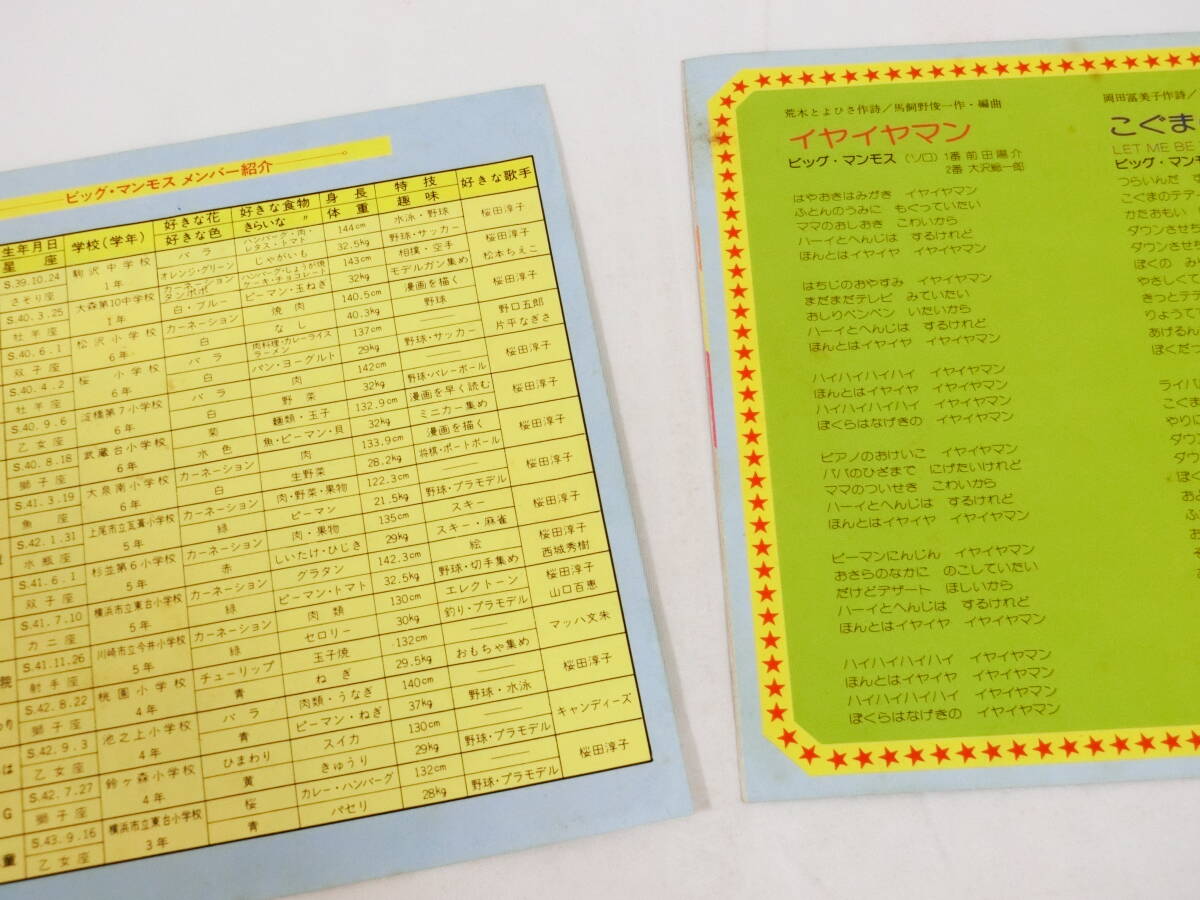 ビッグ・マンモス メンバー紹介
生年月日 学校(学年) 好きな花 好きな食物 身長 特技 好きな歌手
星座 好きな色 きらいな 〃 体重 趣味
S.39.10.24 駒沢中学校 バラ ハンバーグ・肉・レタス・トマト 144cm 水泳・野球 桜田淳子
さそり座 1年 オレンジ・グリーン じゃがいも 32.5kg 野球・サッカー
S.40.3.25 大森第10中学校 カーネーション タンポポ ハンバーグ・しょうが焼 ケーキ・チョコレート 143cm 相撲・空手 桜田淳子 松本ちえこ
牡羊座 1年 白・ブルー ピーマン・玉ねぎ 32kg モデルガン集め
S.40.6.1 松沢小学校 カーネーション 焼肉 140.5cm 漫画を描く 桜田淳子
双子座 6年 白 なし 40.3kg 野球
S.40.4.2 桜小学校 バラ 肉料理・カレーライス ラーメン 137cm 野口五郎 片平なぎさ
牡羊座 6年 白 パン・ヨーグルト 29kg 野球・サッカー
S.40.9.6 淀橋第7小学校 バラ 肉 142cm 桜田淳子
乙女座 6年 白 野菜 32kg 野球・バレーボール
S.40.8.18 武蔵台小学校 菊 麺類・玉子 132.9cm 漫画を早く読む 桜田淳子
獅子座 6年 水色 魚・ピーマン・貝 32kg ミニカー集め
S.41.3.19 大泉南小学校 カーネーション 肉 133.9cm 漫画を描く 桜田淳子
魚座 6年 白 生野菜 28.2kg 将棋・ポートボール
S.42.1.31 上尾市立瓦葺小学校 カーネーション 肉・野菜・果物 122.3cm 桜田淳子
水瓶座 5年 緑 ピーマン 21.5kg 野球・プラモデル
S.41.6.1 杉並第6小学校 カーネーション 肉・果物 135cm スキー 桜田淳子
双子座 5年 赤 しいたけ・ひじき 29kg スキー・麻雀
S.41.7.10 横浜市立東台小学校 カーネーション グラタン 142.3cm 絵 桜田淳子 西城秀樹
カニ座 5年 緑 ピーマン・トマト 32.5kg 野球・切手集め
S.41.11.26 川崎市立今井小学校 カーネーション 肉類 130cm エレクトーン 桜田淳子 山口百恵
射手座 5年 緑 セロリー 30kg 釣り・プラモデル
S.42.8.22 桃園小学校 チューリップ 玉子焼 132cm マッハ文朱
獅子座 4年 青 ねぎ 29.5kg おもちゃ集め
S.42.9.3 池之上小学校 バラ 肉類・うなぎ 140cm 桜田淳子
乙女座 4年 青 ピーマン・ねぎ 37kg 野球・水泳
S.42.7.27 鈴ヶ森小学校 ひまわり スイカ 130cm キャンディーズ
獅子座 4年 黄 きゅうり 29kg 野球・プラモデル
S.43.9.16 横浜市立東台小学校 桜 カレー・ハンバーグ 132cm 桜田淳子
乙女座 3年 青 パセリ 28kg 野球・プラモデル
院
わり
は
G
童
荒木とよひさ作詩/馬飼野俊一作・編曲
イヤイヤマン
ビッグ・マンモス (ソロ) 1番 前田陽介
2番 大沢総一郎
はやおきはみがき イヤイヤマン
ふとんのうみに もぐっていたい
ママのおしおき こわいから
ハーイとへんじは するけれど
ほんとはイヤイヤ イヤイヤマン
はちじのおやすみ イヤイヤマン
まだまだテレビ みていたい
おしりペンペン いたいから
ハーイとへんじは するけれど
ほんとはイヤイヤ イヤイヤマン
ハイハイハイハイ イヤイヤマン
ほんとはイヤイヤ イヤイヤマン
ハイハイハイハイ イヤイヤマン
ぼくらはなげきの イヤイヤマン
ピアノのおけいこ イヤイヤマン
パパのひざまで にげたいけれど
ママのついせき こわいから
ハーイとへんじは するけれど
ほんとはイヤイヤ イヤイヤマン
ピーマンにんじん イヤイヤマン
おさらのなかに のこしていたい
だけどデザート ほしいから
ハーイとへんじは するけれど
ほんとはイヤイヤ イヤイヤマン
ハイハイハイハイ イヤイヤマン
ほんとはイヤイヤ イヤイヤマン
ハイハイハイハイ イヤイヤマン
ぼくらはなげきの イヤイヤマン
岡田冨美子作詩/
こぐま
LET ME BE
ビッグ・マンモ
つらいんだ
こぐまのテデ
かたおもい
ダウンさせち
ダウンさせち
ぼくの み
やさしくて
きっとテデ
りょうて
あげるん
ぼくだっ
ライバ
こぐま
やりに
ダウ
ダウ
ぼく